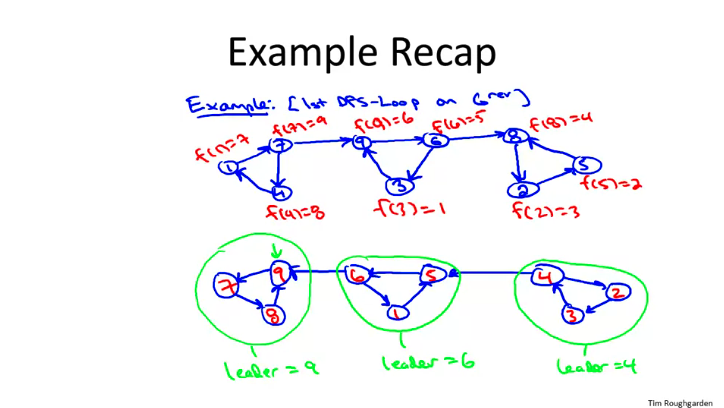 Example Recap
Example: [1st DFS-Loop on G^rev]
f(7)=9 f(9)=6 f(6)=5 f(8)=4
f(1)=7
7 9 6 8
1 3 2 5
4
f(4)=8 f(3)=1 f(2)=3 f(5)=2
7 9 6 5 4 2
8 1 3
leader = 9 leader = 6 leader = 4
Tim Roughgarden